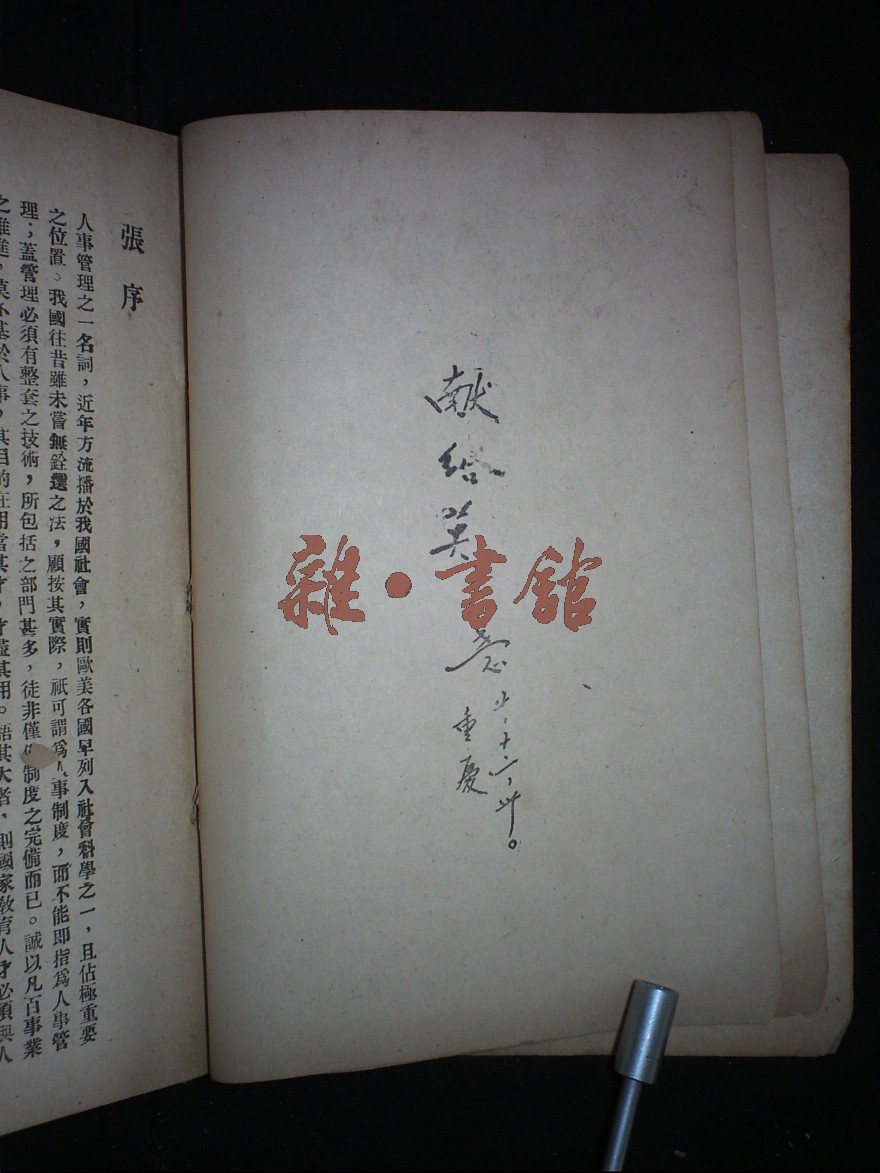 献
给
英
重慶
雜·書館
張序
人事管理之一名詞，近年方流播於我國社會，實則歐美各國早列入社會科學之一，且佔極重要
之位置。我國往昔雖未嘗無銓選之法，顧按其實際，祇可謂爲人事制度，而不能卽指爲人事管
理；蓋管理必須有整套之技術，所包括之部門甚多，徒非僅 制度之完備而已。誠以凡百事業
之推進，莫不基於人事，其目的在用當其才，才盡其用。語其大者，則國家敎育人才必須與人